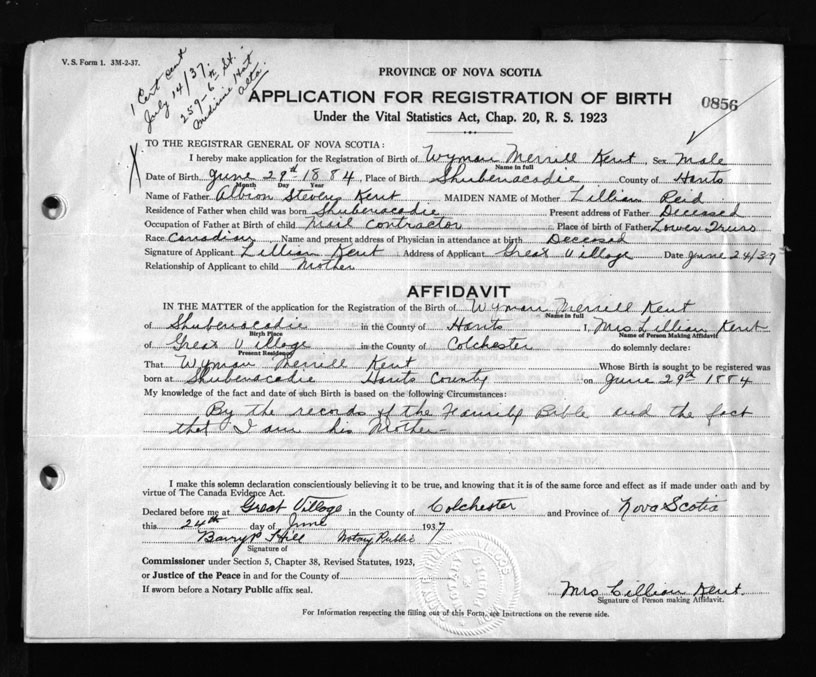 V. S. Form 1. 3M-2-37.
1 Cert sent
July 14/37.
259-6th St.
Medicine Hat
Alta.
PROVINCE OF NOVA SCOTIA
APPLICATION FOR REGISTRATION OF BIRTH
0856
Under the Vital Statistics Act, Chap. 20, R. S. 1923
TO THE REGISTRAR GENERAL OF NOVA SCOTIA:
X
I hereby make application for the Registration of Birth of Wyman Merrill Kent, Sex Male
Name in full
Date of Birth June 29th 1884, Place of Birth Shubenacadie County of Hants
Month Day Year
Name of Father Albion Stevens Kent MAIDEN NAME of Mother Lillian Reid
Residence of Father when child was born Shubenacadie Present address of Father Deceased
Occupation of Father at Birth of child Mail Contractor Place of birth of Father Lower Truro
Race Canadian Name and present address of Physician in attendance at birth Deceased
Signature of Applicant Lillian Kent Address of Applicant Great Village Date June 24/37
Relationship of Applicant to child Mother
AFFIDAVIT
IN THE MATTER of the application for the Registration of the Birth of Wyman Merrill Kent
Name in full
of Shubenacadie in the County of Hants I, Mrs Lillian Kent
Birth Place Name of Person making Affidavit
of Great Village in the County of Colchester do solemnly declare:
Present Residence
That Wyman Merrill Kent Whose Birth is sought to be registered was
born at Shubenacadie Hants County on June 29th 1884
My knowledge of the fact and date of such Birth is based on the following Circumstances:
By the records of the Family Bible and the fact
that I am his Mother-
I make this solemn declaration conscientiously believing it to be true, and knowing that it is of the same force and effect as if made under oath and by
virtue of The Canada Evidence Act.
Declared before me at Great Village in the County of Colchester and Province of Nova Scotia
this 24th day of June 1937
Barry P Hill Notary Public
Signature of
Commissioner under Section 5, Chapter 38, Revised Statutes, 1923,
or Justice of the Peace in and for the County of
If sworn before a Notary Public affix seal.
Mrs Lillian Kent.
Signature of Person making Affidavit.
For Information respecting the filling out of this Form, see Instructions on the reverse side.